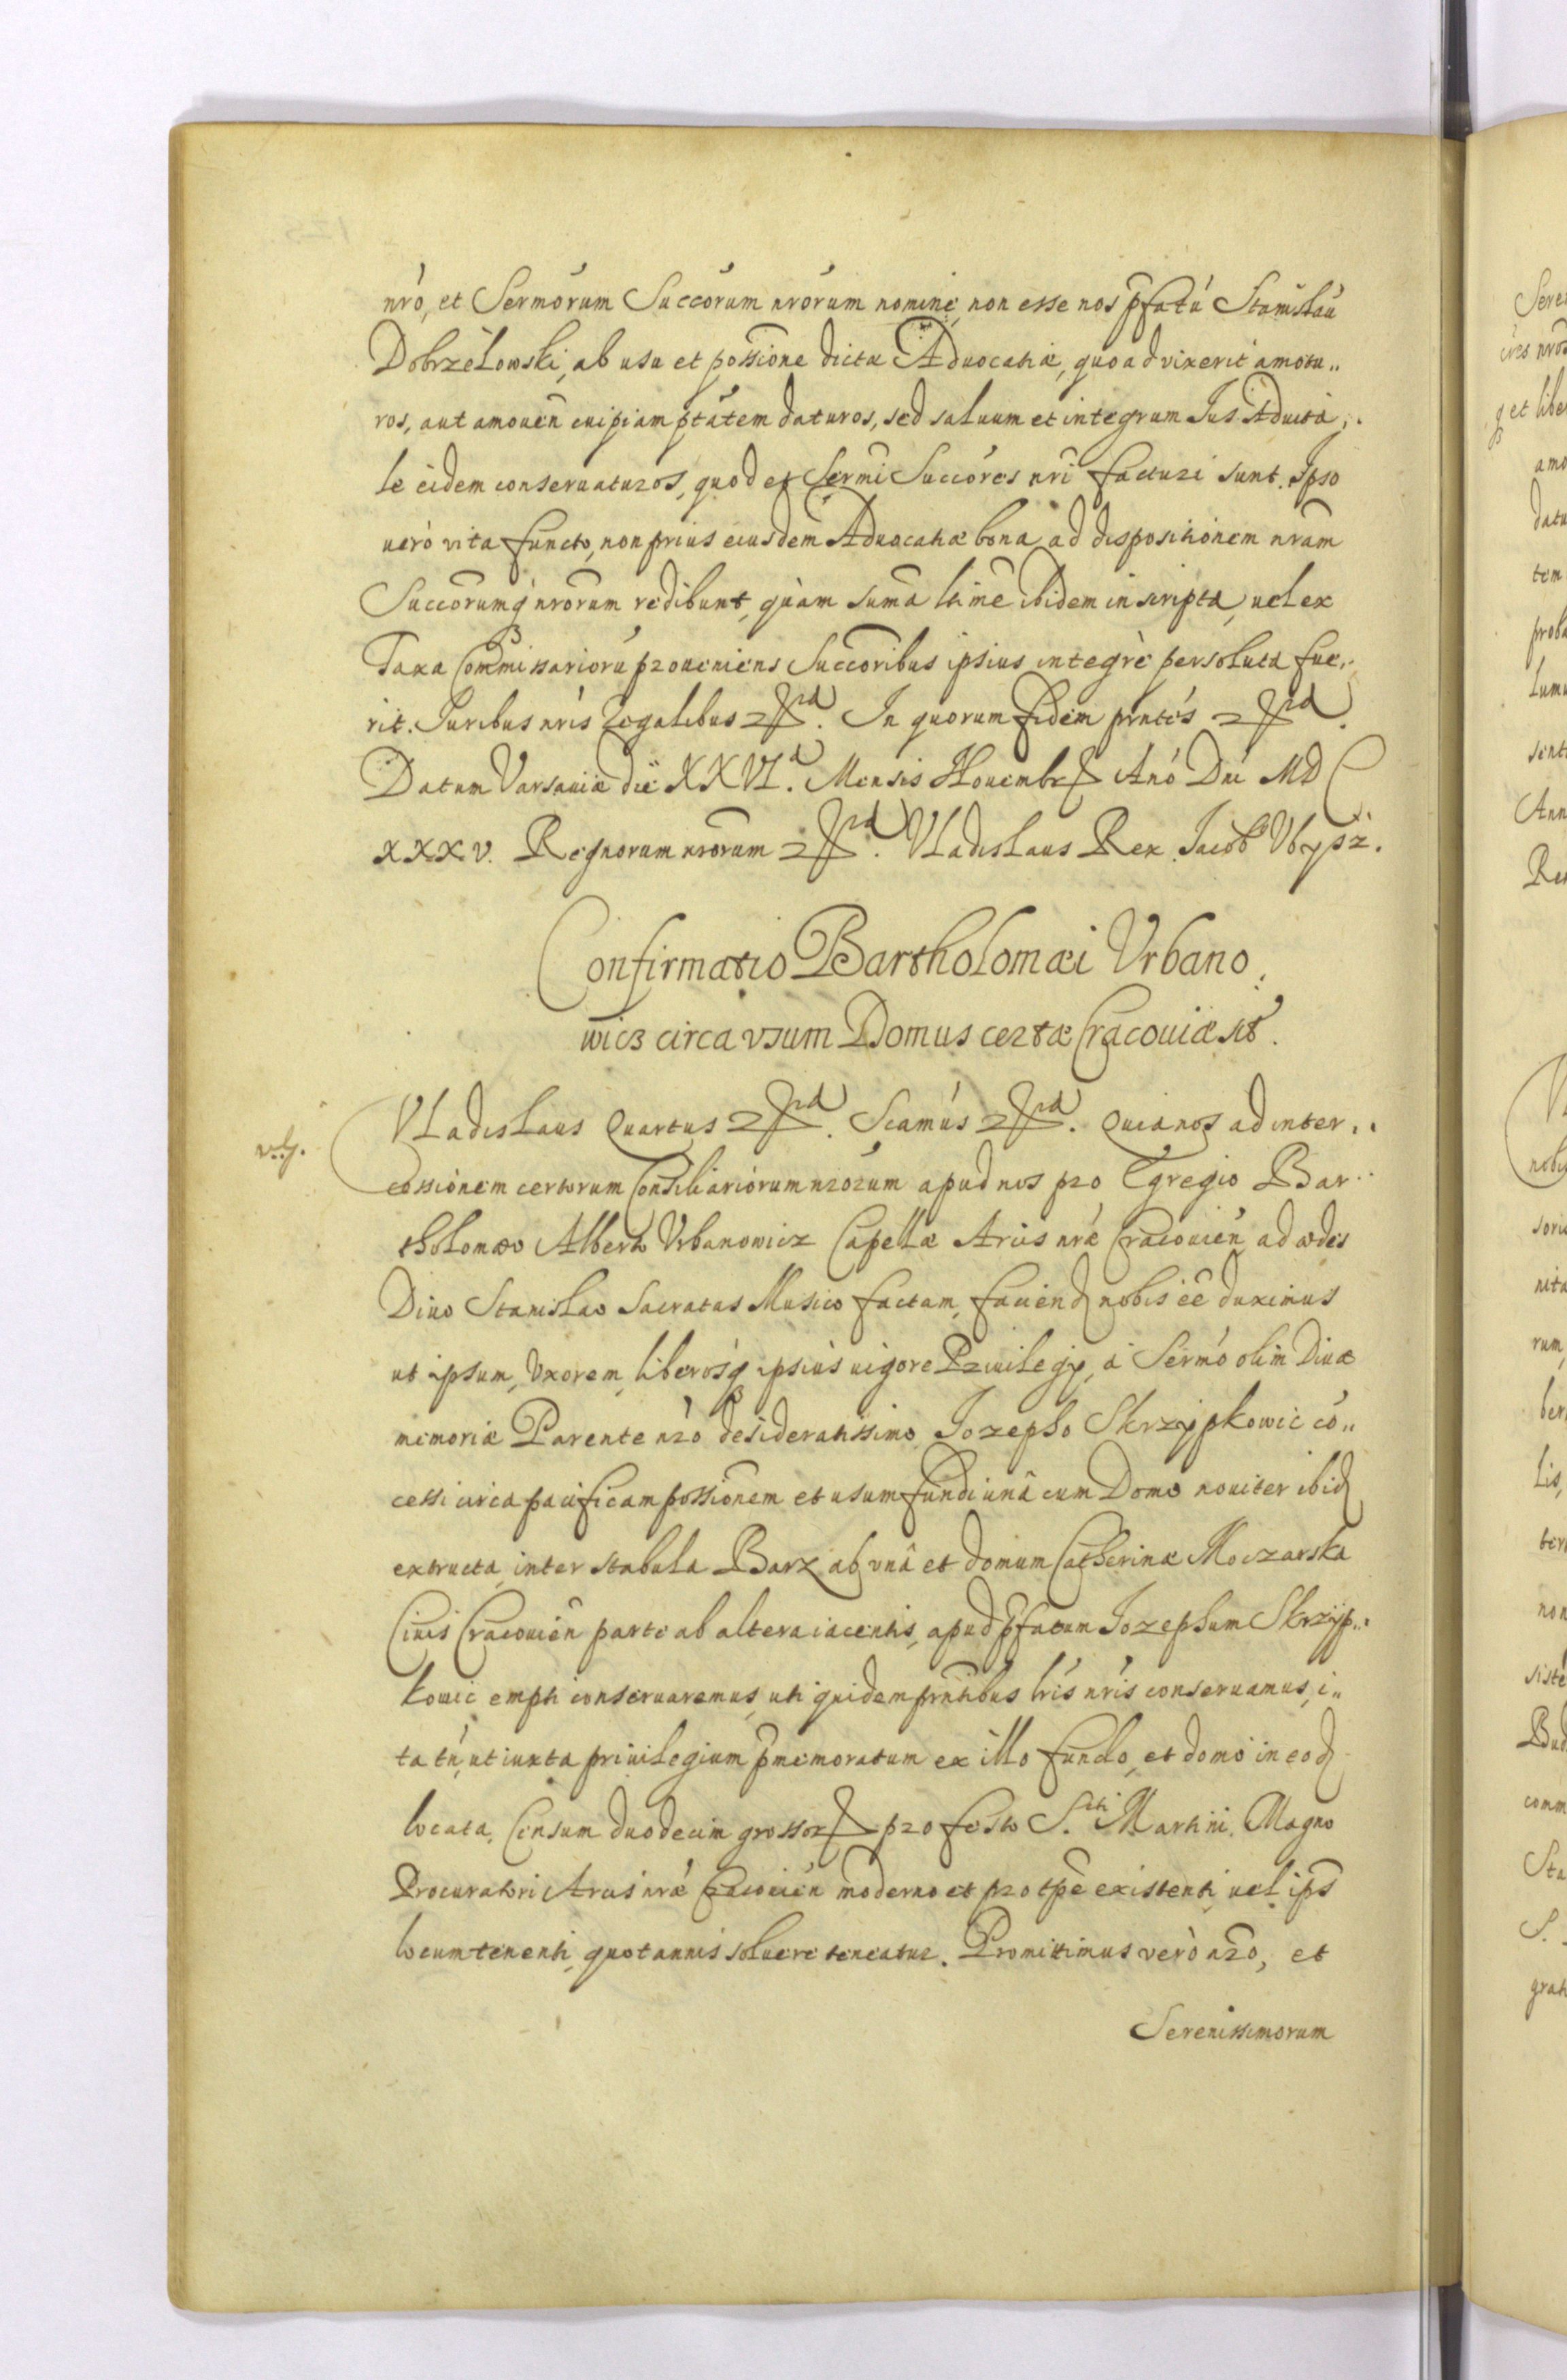 nr̃o, et Serm̃orum Succ̃orum nr̃orum nomine, non esse nos p̃fatũ Stanislaũ
Dobrzelowski, ab usu et possiõne dictæ Aduocatiæ, quoad vixerit amotu„
ros, aut amouen̄ cuipiam ptãtem daturos, sed saluum et integrum Jus Aduita„
le eidem conseruaturos, quod et Serm̃i Succ̃ores nr̃i facturi sunt. Ipso
uerò vita functo, non prius eiusdem Aduocatiæ bona ad dispositionem nr̃am
Succ̃orumq́ nr̃orum redibunt, quàm sum̃a ltime ibidem inscripta, uel ex
Taxa Commissariorũ proueniens Succ̃oribus ipsius integrè persoluta fue„
rit. Juribus nr̃is Regalibus etc. In quorum fidem prñtes etc.
Datum Varsauiæ die XXVI.a Mensis Nouembr. Anõ Dñi MDC
XXXV. Regnorum nr̃orum etc. Vladislaus Rex. Jacob Vbysz.
Confirmatio Bartholomæi Vrbano„
wicz circa vsum Domus certæ Cracouiæ sit.
v.g.
Vladislaus Quartus etc. Sc̃amus etc. Quia nos ad inter„
cessionem certorum Consiliariorum nr̃orum apud nos pro Egregio Bar„
tholomæo Alberto Vrbanowicz Capellæ Arcis nr̃æ Cracouien̄ ad ædes
Diuo Stanislao sacratas Musico factam, faciend nobis eẽ duximus
ut ipsum, Vxorem, liberosq́ ipsius uigore Priuilegij, à Serm̃o olim Diuæ
memoriæ Parente nr̃o desideratissimo Jozepho Skrzypkowic cõ„
cessi circa pacificam possiõnem et usum fundi unâ cum Domo nouiter ibid
extructa, inter stabula Barz ab unâ et domum Catherinæ Moczarska
Ciuis Cracouien̄ parte ab altera iacentis, apud p̃fatum Jozephum Skrzyp„
kowic empti conseruaremus, uti quidem prñtibus lr̃is nr̃is conseruamus, i„
ta tñ, ut iuxta priuilegium p̃memoratum ex illo fundo, et domo in eod
locata, Censum duodecim grossor. pro festo S.cti Martini, Magno
Procuratori Arcis nr̃æ Cracouien̄ moderno et pro tpẽ existenti uel ips
locumtenenti, quotannis soluere teneatur. Promittimus verò nr̃o, et
Serenissimorum